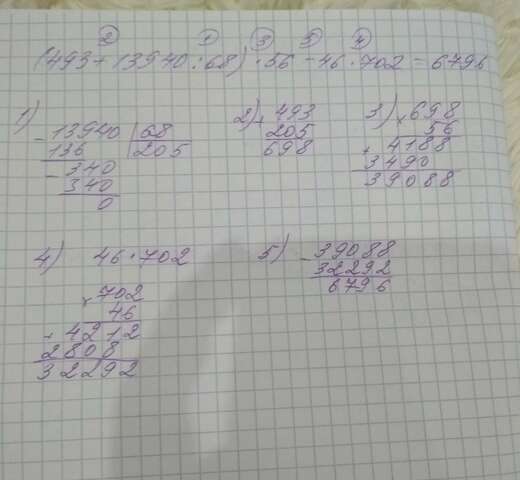 ② ① ③ ⑤ ④
(493+13940:68)·56-46·702=6796
1)
-13940 |68
136 205
-340
340
0
2) +493
205
698
3) ×698
56
+4188
3490
39088
4) 46·702
×702
46
+4212
2808
32292
5) -39088
32292
6796